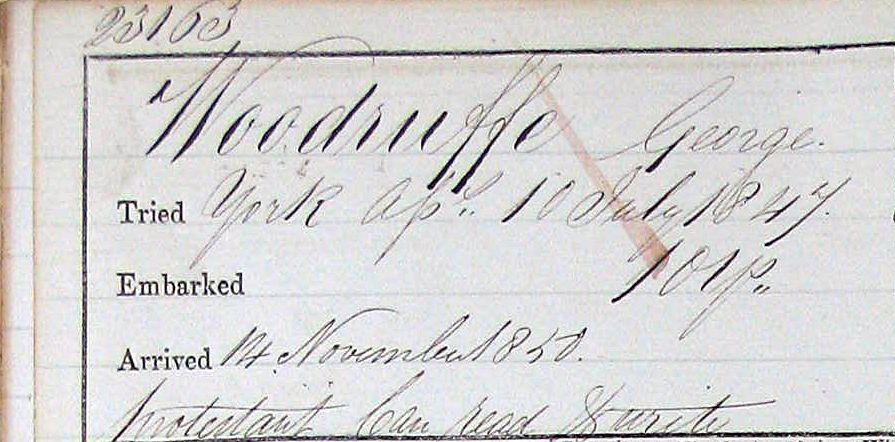 23163
Woodruffe George.
Tried York Ass. 10 July 1847.
Embarked 10 yrs
Arrived 14 November 1850.
Protestant Can read & write